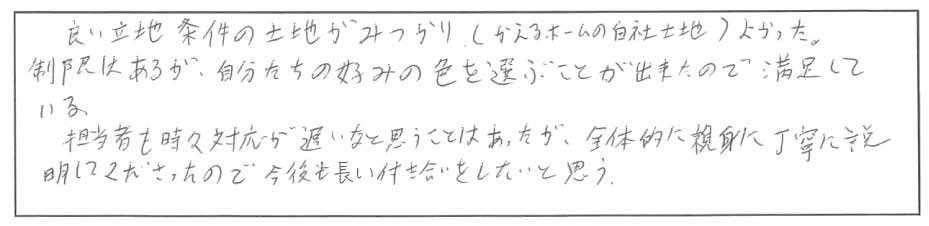 良い立地条件の土地がみつかり（かえるホームの自社土地）よかった。
制限はあるが、自分たちの好みの色を選ぶことが出来たので満足して
いる。
担当者も時々対応が遅いなと思うことはあったが、全体的に親身に丁寧に説
明してくださったので今後も長い付き合いをしたいと思う.